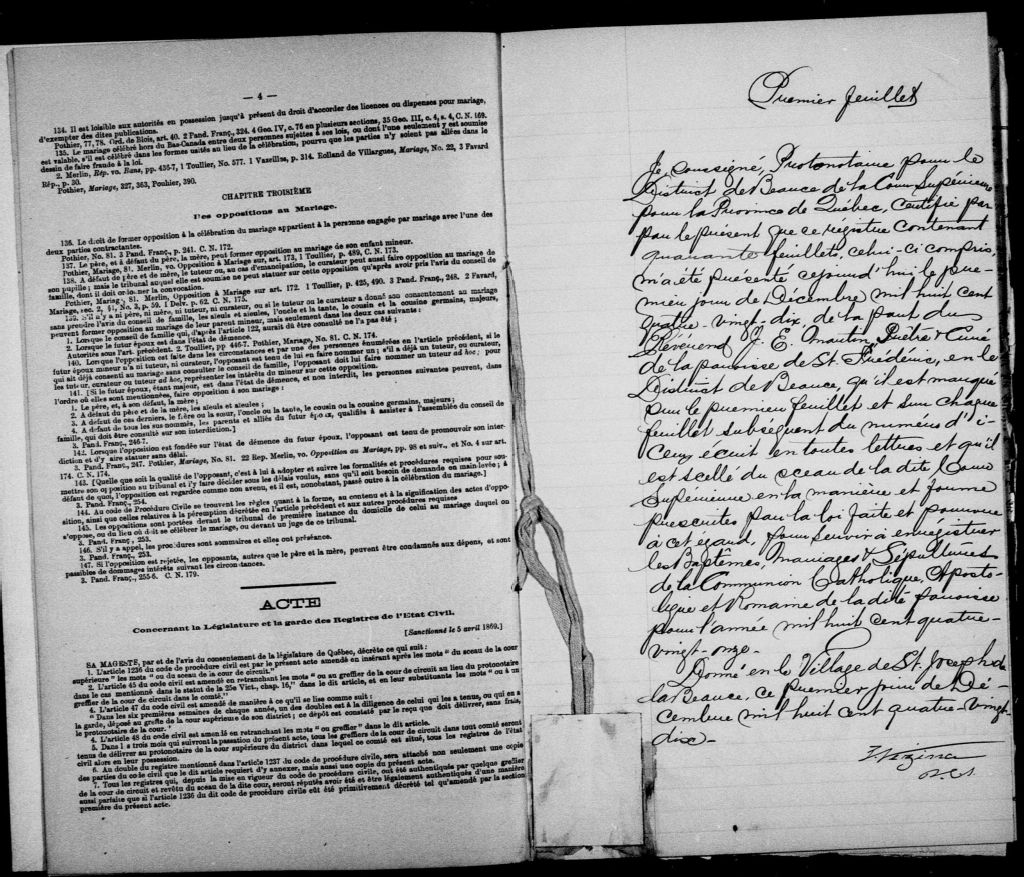 — 4 —
134. Il est loisible aux autorités en possession jusqu'à présent du droit d'accorder des licences ou dispenses pour mariage,
d'exempter des dites publications.
Pothier, 77, 78. Ord. de Blois, art. 40. 2 Pand. Franç., 324. 4 Geo. IV, c. 76 en plusieurs sections, 35 Geo. III, c. 4, s. 4, C. N. 169.
135. Le mariage célébré hors du Bas-Canada entre deux personnes sujettes à ses lois, ou dont l'une seulement y est soumise
est valable, s'il est célébré dans les formes usités au lieu de la célébration, pourvu que les parties n'y soient pas allées dans le
dessin de faire fraude à la loi.
2. Merlin, Rép. vo. Bans, pp. 435-7, 1 Toullier, No. 577. 1 Vazeilles, p. 314. Rolland de Villargues, Mariage, No. 22, 3 Favard
Rép., p. 30.
Pothier, Mariage, 327, 363, Pouhier, 390.
CHAPITRE TROISIÈME
Des oppositions au Mariage.
136. Le droit de former opposition à la célébration du mariage appartient à la personne engagée par mariage avec l'une des
deux parties contractantes.
Pothier, No. 81. 3 Pand. Franç., p. 241. C. N. 172.
137. Le père, et à défaut du père, la mère, peut former opposition au mariage de son enfant mineur.
Pothier, Mariage, 81. Merlin, vo. Opposition à Mariage sur, art. 173, 1 Toullier, p. 489, C. N. 173.
138. A défaut de père et de mère, le tuteur ou, au cas d'émancipation, le curateur peut aussi faire opposition au mariage de
son pupille; mais le tribunal auquel elle est soumise ne peut statuer sur cette opposition qu'après avoir pris l'avis du conseil de
famille, dont il doit ordonner la convocation.
Pothier, Mariag., 81. Merlin, Opposition à Mariage sur art. 172. 1 Toullier, p. 425, 490. 3 Pand. Franç., 248. 2 Favard,
Mariage, sec. 2, §1, No. 3, p. 59. 1 Delv. p. 62. C. N. 175.
139. S'il n'y a ni père, ni mère, ni tuteur, ni curateur, ou si le tuteur ou le curateur a donné son consentement au mariage
sans prendre l'avis du conseil de famille, les aïeuls et aïeules, l'oncle et la tante, le cousin et la cousine germains, majeurs,
peuvent former opposition au mariage de leur parent mineur, mais seulement dans les deux cas suivants:
1. Lorsque le conseil de famille qui, d'après l'article 122, aurait dû être consulté ne l'a pas été;
2. Lorsque le futur époux est dans l'état de démence.
Autorités sous l'art. précédent. 2. Toullier, pp 446-7. Pothier, Mariage, No. 81. C. N. 174.
140. Lorsque l'opposition est faite dans les circonstances et par une des personnes énumérées en l'article précédent, si le
futur époux mineur n'a ni tuteur, ni curateur, l'opposant est tenu de lui en faire nommer un; s'il a déjà un tuteur, ou curateur,
qui ait déjà consenti au mariage sans consulter le conseil de famille, l'opposant doit lui faire nommer un tuteur ad hoc; pour
les tuteur, curateur ou tuteur ad hoc, représenter les intérêts du mineur sur cette opposition.
141. [Si le futur époux, étant majeur, est dans l'état de démence, et non interdit, les personnes suivantes peuvent, dans
l'ordre où elles sont mentionnées, faire opposition à son mariage:
1. Le père, et, à son défaut, la mère;
2. A défaut du père et de la mère, les aïeuls et aïeules;
3. A défaut de ces derniers, le frère ou la sœur, l'oncle ou la tante, le cousin ou la cousine germains, majeurs;
4. A défaut de tous les sus nommés, les parents et alliés du futur époux, qualifiés à assister à l'assemblée du conseil de
famille, qui doit être consulté sur son interdiction.]
3. Pand. Franç., 246-7.
142. Lorsque l'opposition est fondée sur l'état de démence du futur époux, l'opposant est tenu de promouvoir son inter-
diction et d'y faire statuer sans délai.
3. Pand. Franç., 247. Pothier, Mariage, No. 81. 22 Rep. Merlin, vo. Opposition au Mariage, pp. 98 et suiv., et No. 4 sur art.
174. C. N. 174.
143. [Quelle que soit la qualité de l'opposant, c'est à lui à adopter et suivre les formalités et procédures requises pour sou-
mettre son opposition au tribunal et l'y faire décider sous les délais voulus, sans qu'il soit besoin de demande en main-levée; à
défaut de quoi, l'opposition est regardée comme non avenu, et il est, nonobstant, passé outre à la célébration du mariage.]
3. Pand. Franç., 254.
144. Au code de Procédure Civile se trouvent les règles quant à la forme, au contenu et à la signification des actes d'oppo-
sition, ainsi que celles relatives à la péremption décrétée en l'article précédent et aux autres procédures requises
145. Les oppositions sont portées devant le tribunal de première instance du domicile de celui au mariage duquel on
s'oppose, ou du lieu où doit se célébrer le mariage, ou devant un juge de ce tribunal.
3. Pand. Franç., 253.
146. S'il y a appel, les procédures sont sommaires et elles ont préséance.
3. Pand. Franç., 253.
147. Si l'opposition est rejetée, les opposants, autres que le père et la mère, peuvent être condamnés aux dépens, et sont
passibles de dommages intérêts suivant les circonstances.
3. Pand. Franç., 255-6. C. N. 179.
ACTE
Concernant la Législature et la garde des Registres de l'Etat Civil.
[Sanctionné le 5 avril 1869.]
SA MAGESTÉ, par et de l'avis du consentement de la législature de Québec, décrète ce qui suit:
1. L'article 1236 du code de procédure civil est par le présent acte amendé en insérant après les mots "du sceau de la cour
supérieure" les mots "ou du sceau de la cour de circuit."
2. L'article 45 du code civil est amendé en retranchant les mots "ou au greffier de la cour de circuit au lieu du protonotaire
dans le cas mentionné dans le statut de la 25e Vict., chap. 16," dans le dit article, et en leur substituants les mots "ou à un
greffier de la cour de circuit dans le comté."
3. L'article 47 du code civil est amendé de manière à ce qu'il se lise comme suit:
"Dans les six premières semaines de chaque année, un des doubles est à la diligence de celui qui les a tenus, ou qui en a
la garde, déposé au greffe de la cour supérieure de son district; ce dépôt est constaté par le reçu que doit délivrer, sans frais,
le protonotaire de la cour."
4. L'article 48 du code civil est amendé en retranchant les mots "ou greffier" dans le dit article.
5. Dans les trois mois qui suivront la passation du présent acte, tous les greffiers de la cour de circuit dans tout comté seront
tenus de délivrer au protonotaire de la cour supérieure du district dans lequel ce comté est situé, tous les registres de l'état
civil alors en leur possession.
6. Au double du registre mentionné dans l'article 1237 du code de procédure civile, sera attaché non seulement une copie
des parties du code civil que le dit article requiert d'y annexer, mais aussi une copie du présent acte.
7. Tous les registres qui, depuis la mise en vigueur du code de procédure civile, ont été authentiqués par quelque greffier
de la cour de circuit et revêtu du sceau de la dite cour, seront réputés avoir été et être légalement authentiqués d'une manière
aussi parfaite que si l'article 1236 du dit code de procédure civile eût été primitivement décrété tel qu'amendé par la section
première du présent acte.
Premier feuillet
Je, soussigné, Protonotaire pour le
District de Beauce de la Cour Supérieure
pour la Province de Québec, certifie par
par le présent que ce régistre contenant
quarante feuillets, celui-ci compris,
m'a été présenté cejourd'hui le pre-
mier jour de Décembre mil huit cent
quatre-vingt-dix, de la part du
Révérend J. E. Martin, Prêtre & Curé
de la paroisse de St. Frédéric, en le
District de Beauce, qu'il est marqué
sur le premier feuillet et sur chaque
feuillet subséquent du numéro d'i-
ceux écrit en toutes lettres et qu'il
est scellé du sceau de la dite Cour
Supérieure en la manière et forme
prescrites par la loi faite et pourvue
à cet égard, pour servir à enrégistrer
les Baptêmes, Mariages & Sépultures
de la Communion Catholique, Aposto-
lique et Romaine de la dite paroisse
pour l'année mil huit cent quatre-
vingt-onze.
Donné en le Village de St. Joseph de
la Beauce, ce premier jour de Dé-
cembre mil huit cent quatre-vingt-
dix-
Vézina
P. C. S.